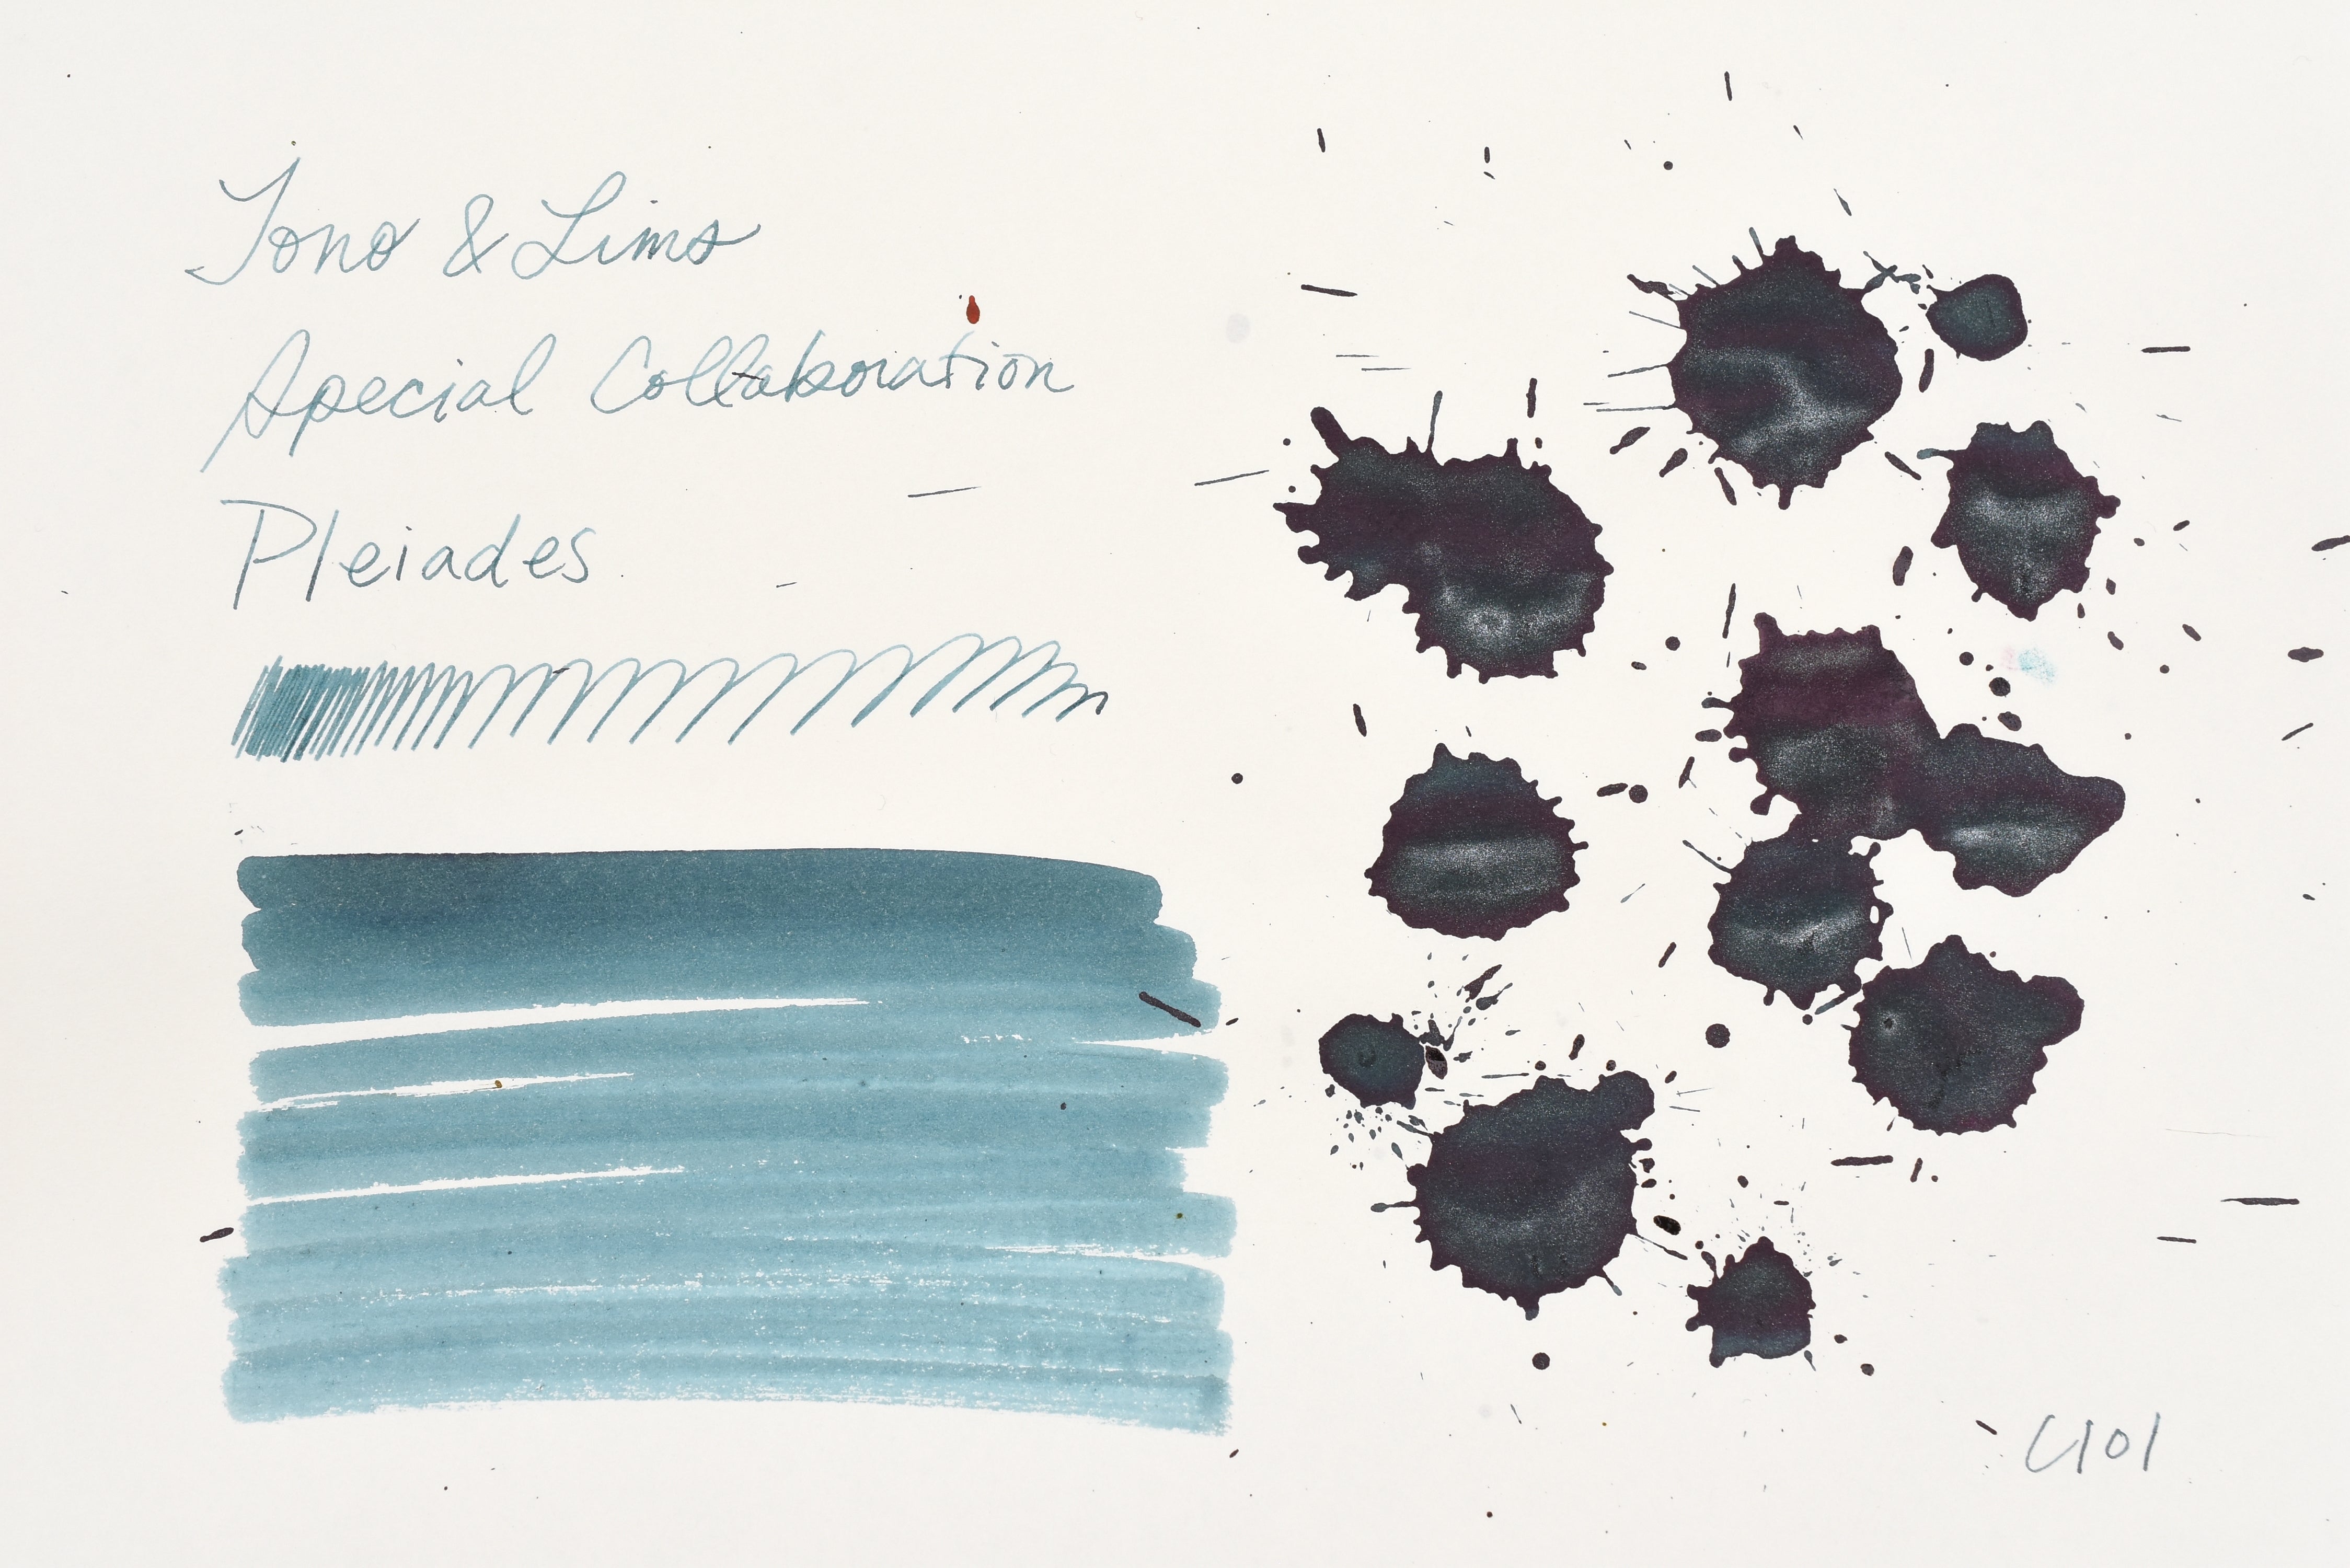 Tono & Lims
Special Collaboration
Pleiades
C101